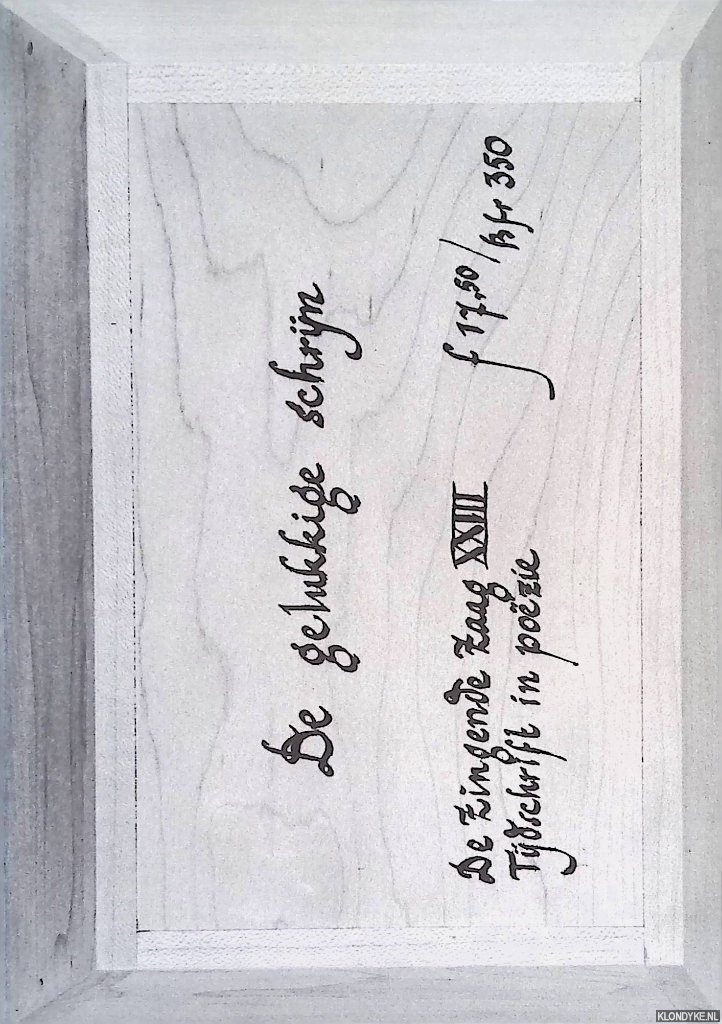 De gelukkige schrijn
De Zingende Zaag XXIII
Tijdschrift in poëzie
f 17,50/Bfr 350
KLONDYKE.NL